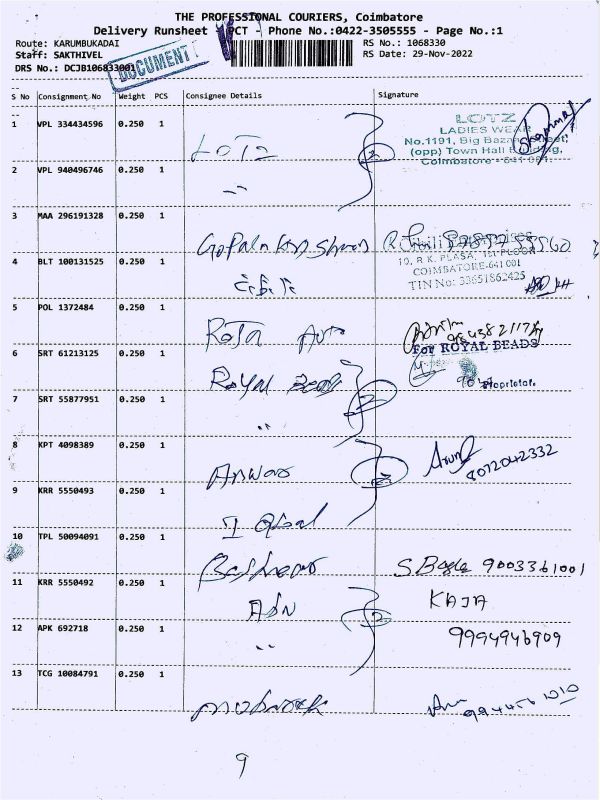 THE PROFESSIONAL COURIERS, Coimbatore
Delivery Runsheet - PCT - Phone No.:0422-3505555 - Page No.:1
Route: KARUMBUKADAI RS No.: 1068330
Staff: SAKTHIVEL RS Date: 29-Nov-2022
DRS No.: DCJB106833001
DOCUMENT
S No Consignment No Weight PCS Consignee Details Signature
1 VPL 334434596 0.250 1 LOTZ
LOTZ
LADIES WEAR
No.1191, Big Bazaar Street,
(opp) Town Hall Building,
Coimbatore - 641 001.
2 VPL 940496746 0.250 1 "
2
3 MAA 296191328 0.250 1
4 BLT 100131525 0.250 1
10, R.K. PLASA, 1st FLOOR
COIMBATORE-641 001
TIN No: 33651862425
5 POL 1372484 0.250 1 Roja Auto
6 SRT 61213125 0.250 1 Royal Beads
For ROYAL BEADS
Proprietor.
7 SRT 55877951 0.250 1 "
2
8 KPT 4098389 0.250 1 Anwar
Arun
8072042332
9 KRR 5550493 0.250 1 Iqbal
2
10 TPL 50094091 0.250 1 9003361001
11 KRR 5550492 0.250 1 KAJA
12 APK 692718 0.250 1 " 9994946909
2
13 TCG 10084791 0.250 1 mubarak
9